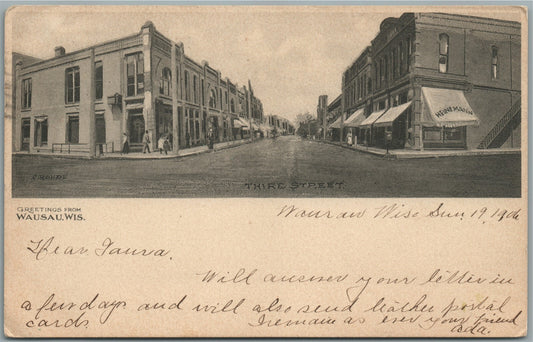 HEINEMANN
C. ROHDE
THIRD STREET
GREETINGS FROM
WAUSAU, WIS.
Wausau Wis Jun 19, 1906
Dear Laura.
Will answer your letter in
a few days and will also send leather postal
cards. I remain as ever your friend
Ada.